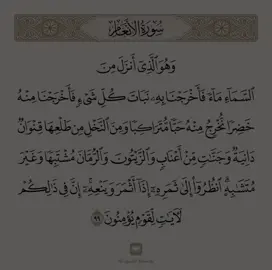 سُورَةُ الأَنعَامِ
وَهُوَ ٱلَّذِىٓ أَنزَلَ مِنَ
ٱلسَّمَآءِ مَآءً فَأَخْرَجْنَا بِهِۦ نَبَاتَ كُلِّ شَىْءٍ فَأَخْرَجْنَا مِنْهُ
خَضِرًا نُّخْرِجُ مِنْهُ حَبًّا مُّتَرَاكِبًا وَمِنَ ٱلنَّخْلِ مِن طَلْعِهَا قِنْوَانٌ
دَانِيَةٌ وَجَنَّٰتٍ مِّنْ أَعْنَابٍ وَٱلزَّيْتُونَ وَٱلرُّمَّانَ مُشْتَبِهًا وَغَيْرَ
مُتَشَٰبِهٍ ٱنظُرُوٓا۟ إِلَىٰ ثَمَرِهِۦٓ إِذَآ أَثْمَرَ وَيَنْعِهِۦٓ إِنَّ فِى ذَٰلِكُمْ
لَءَايَٰتٍ لِّقَوْمٍ يُؤْمِنُونَ ٩٩